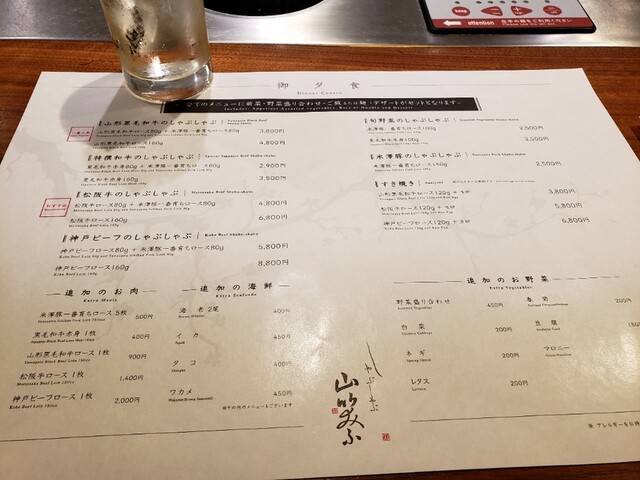 attention
御夕食
Dinner Course
全てのメニューに前菜・野菜盛り合わせ・ご飯または麺・デザートがセットとなります。
山形黒毛和牛のしゃぶしゃぶ
山形黒毛和牛ロース80g + 米澤豚一番育ちロース80g 3,800円
山形黒毛和牛ロース160g 4,800円
特撰和牛のしゃぶしゃぶ
黒毛和牛赤身80g + 米澤豚一番育ちロース80g 2,900円
黒毛和牛赤身160g 3,500円
おすすめ
松阪牛のしゃぶしゃぶ
松阪牛ロース80g + 米澤豚一番育ちロース80g 4,800円
松阪牛ロース160g 6,800円
神戸ビーフのしゃぶしゃぶ Kobe Beef Shabu-shabu
神戸ビーフロース80g + 米澤豚一番育ちロース80g 5,800円
神戸ビーフロース160g 8,800円
Kobe Beef Loin 160g
旬野菜のしゃぶしゃぶ
米澤豚一番育ちロース160g 2,500円
黒毛和牛赤身100g 3,500円
米澤豚のしゃぶしゃぶ
米澤豚一番育ちロース160g 2,500円
すき焼き
山形黒毛和牛ロース120g + 玉卵 3,800円
松阪牛ロース120g + 玉卵 5,800円
神戸ビーフロース120g + 玉卵 6,800円
追加のお肉
Extra Meats
米澤豚一番育ちロース 5枚 500円
黒毛和牛赤身 1枚 400円
山形黒毛和牛ロース 1枚 900円
松阪牛ロース 1枚 1,400円
神戸ビーフロース 1枚 2,000円
追加の海鮮
Extra Seafoods
海老2尾 400円
イカ 400円
タコ 400円
ワカメ 450円
※その他のメニューもございます
追加のお野菜
Extra Vegetables
野菜盛り合わせ 450円
白菜 200円
ネギ 200円
レタス 200円
Lettuce
春菊 200円
豆腐
マロニー
しゃぶしゃぶ
山笑ふ